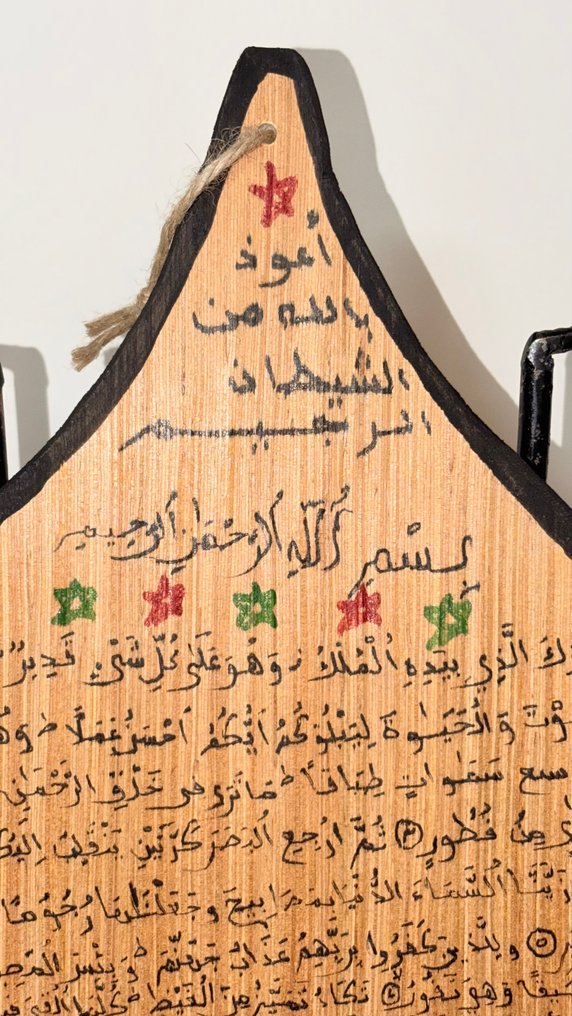 أعوذ
بالله من
الشيطان
الرجيم
بِسْمِ اللَّهِ الرَّحْمَٰنِ الرَّحِيمِ
الَّذِي بِيَدِهِ الْمُلْكُ وَهُوَ عَلَىٰ كُلِّ شَيْءٍ قَدِيرٌ
وَالْحَيَوٰةَ لِيَبْلُوَكُمْ أَيُّكُمْ أَحْسَنُ عَمَلًا
سبع سَمَٰوَاتٍ طِبَاقًا مَا تَرَىٰ فِي خَلْقِ الرَّحْمَٰنِ
مِن فُطُورٍ ٣ ثُمَّ ارْجِعِ الْبَصَرَ كَرَّتَيْنِ يَنقَلِبْ
زَيَّنَّا السَّمَاءَ الدُّنْيَا بِمَصَابِيحَ وَجَعَلْنَاهَا رُجُومًا
٥ وَلِلَّذِينَ كَفَرُوا بِرَبِّهِمْ عَذَابُ جَهَنَّمَ وَبِئْسَ
وَهِيَ تَفُورُ تَكَادُ تَمَيَّزُ مِنَ الْغَيْظِ كُلَّمَا أُلْقِيَ